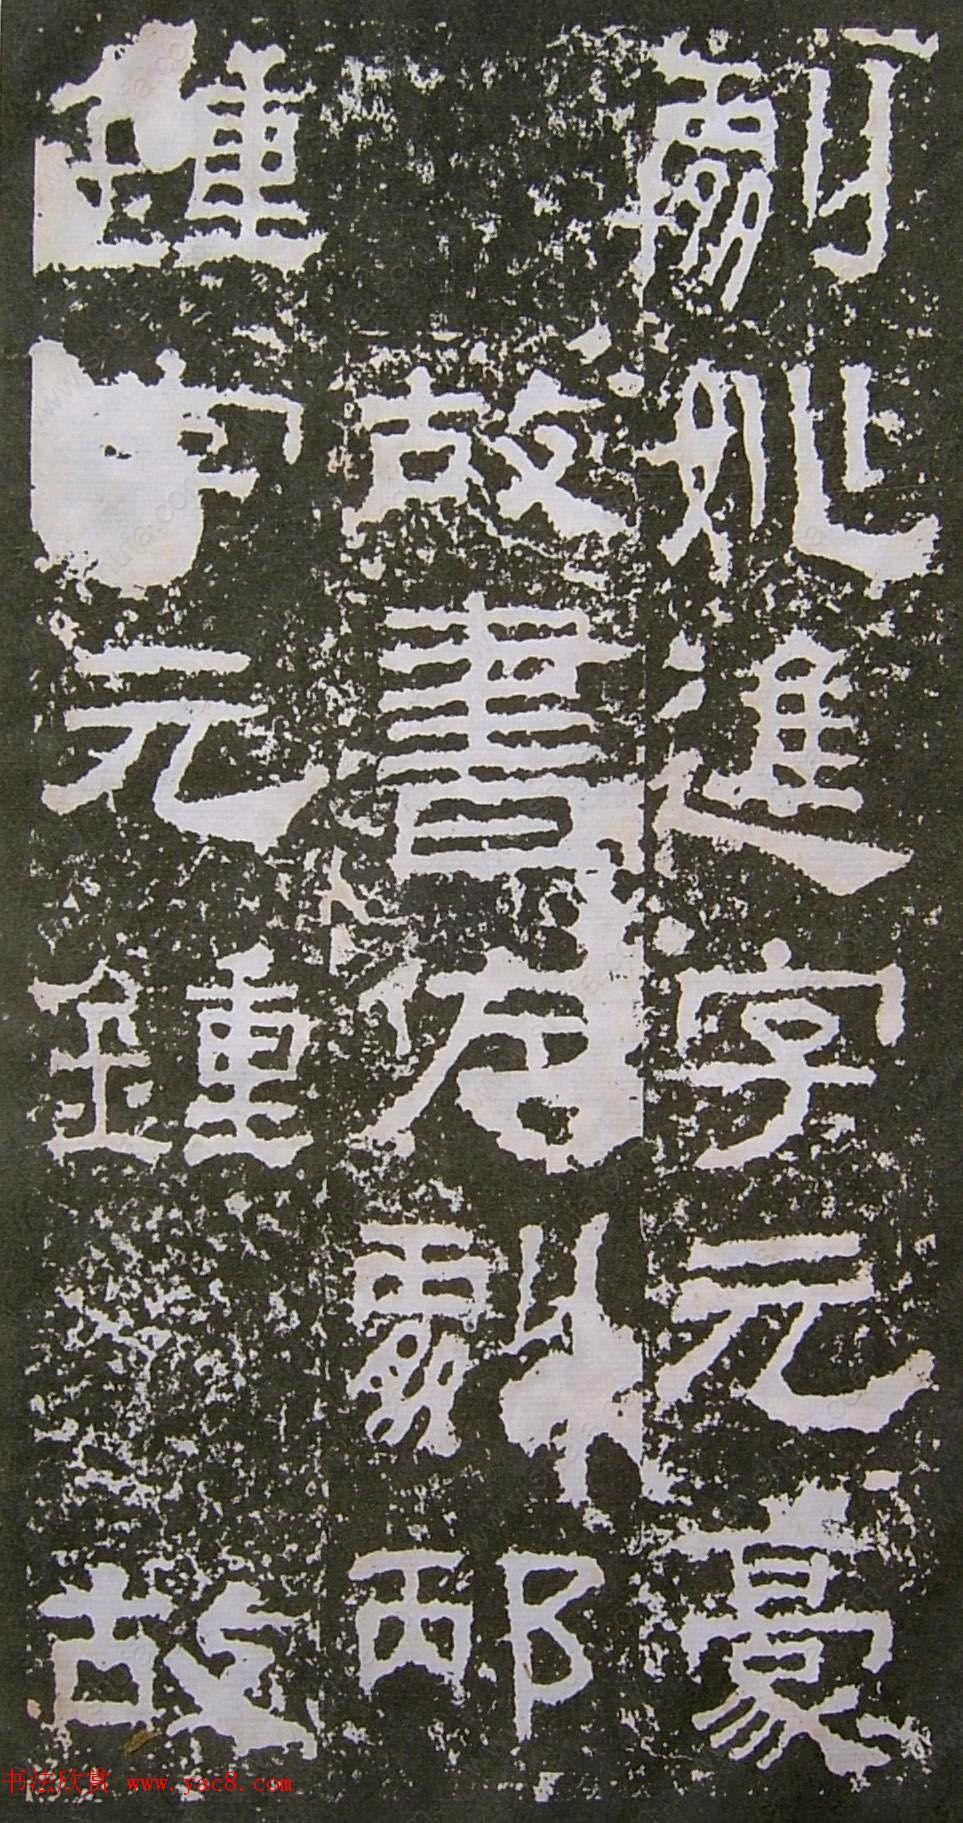 劇姚進字元豪
故書佐劇邴
鍾字元鍾 故
书法欣赏 www.yac8.com